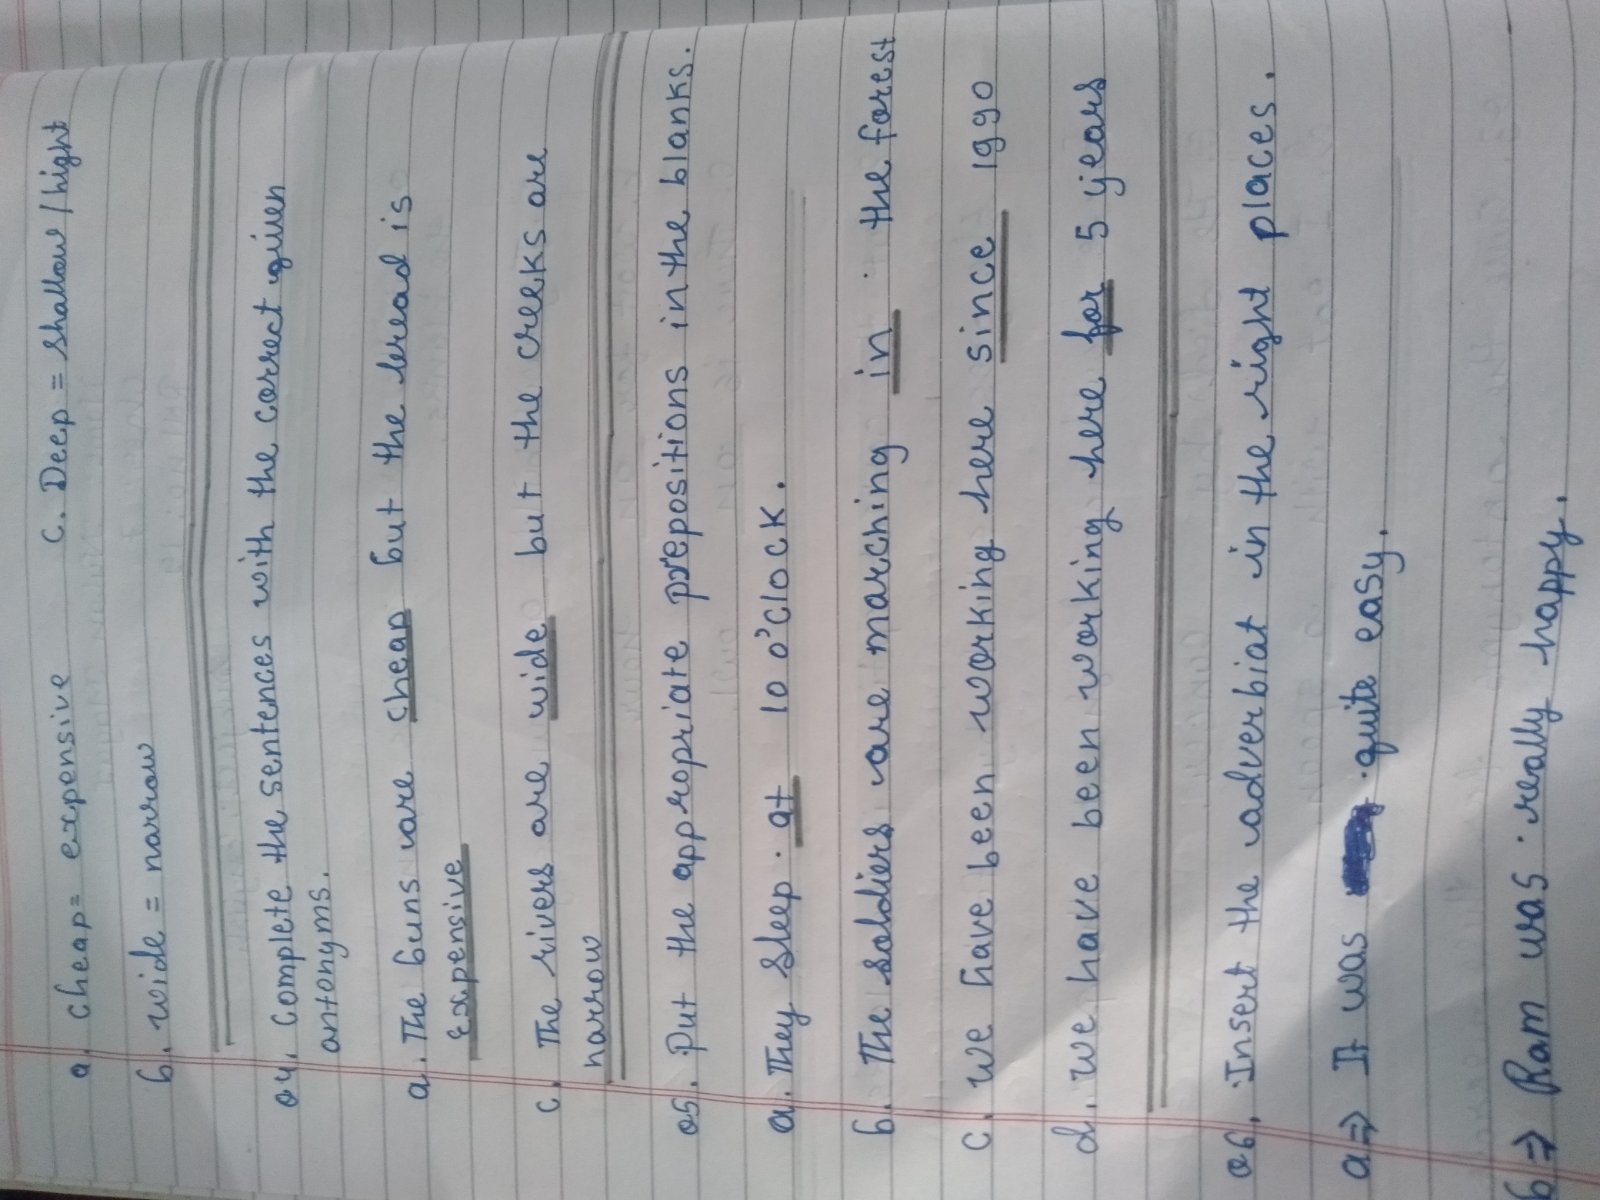 a. cheap = expensive c. Deep = shallow / hight
b. wide = narrow
Q4. Complete the sentences with the correct given
antonyms.
a. The buns are cheap but the bread is
expensive
c. The rivers are wide but the creeks are
narrow
Q5. Put the appropriate prepositions in the blanks.
a. They sleep at 10 o'clock.
b. The soldiers are marching in the forest
c. we have been working here since 1990
d. we have been working here for 5 years
Q6. Insert the adverbiat in the right places.
a⇒ It was quite easy.
b⇒ Ram was really happy.